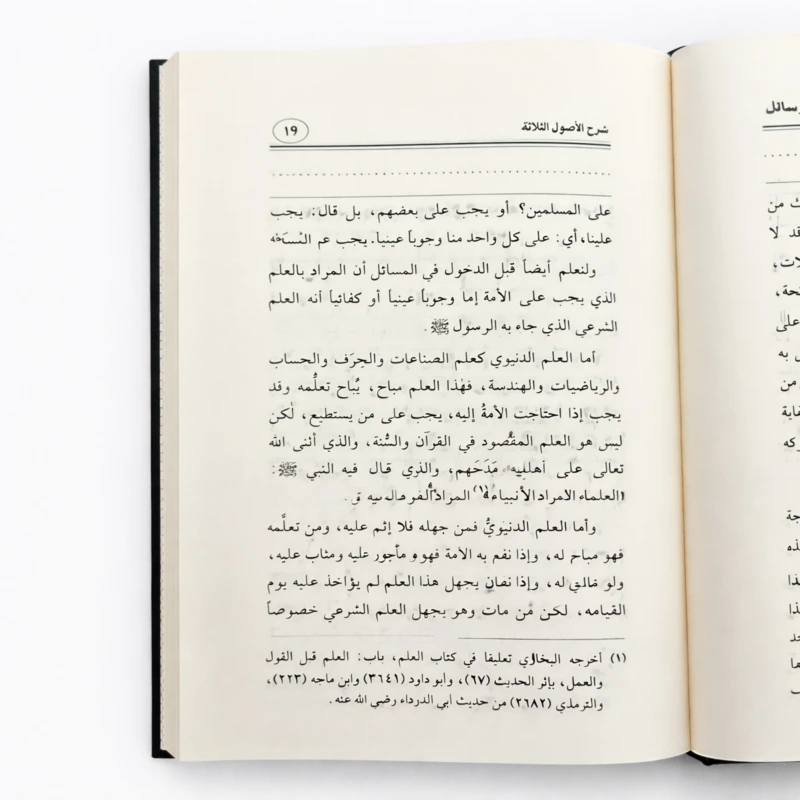 شرح الأصول الثلاثة
١٩
على المسلمين؟ أو يجب على بعضهم، بل قال: يجب
علينا، أي: على كل واحد منا وجوباً عينياً. يجب
ولنعلم أيضاً قبل الدخول في المسائل أن المراد بالعلم
الذي يجب على الأمة إما وجوباً عينياً أو كفائياً أنه العلم
الشرعي الذي جاء به الرسول ﷺ.
أما العلم الدنيوي كعلم الصناعات والحِرَف والحساب
والرياضيات والهندسة، فهٰذا العلم مباح، يُباح تعلُّمه وقد
يجب إذا احتاجت الأمةُ إليه، يجب على من يستطيع، لٰكن
ليس هو العلم المقصود في القرآن والسُّنة، والذي أثنى الله
تعالى على أهله مَدَحَهم، والذي قال فيه النبي ﷺ:
(١) المراد
وأما العلم الدنيويُّ فمن جهله فلا إثم عليه، ومن تعلَّمه
فهو مباح له، وإذا نفع به الأمة فهو مأجور عليه ومثاب عليه،
ولو له، وإذا يجهل هذا العلم لم يؤاخذ عليه يوم
القيامه، لكن من مات وهو يجهل العلم الشرعي خصوصاً
(١) أخرجه البخاري تعليقا في كتاب العلم، باب: العلم قبل القول
والعمل، بإثر الحديث (٦٧)، وأبو داود (٣٦٤١) وابن ماجه (٢٢٣)،
والترمذي (٢٦٨٢) من حديث أبي الدرداء رضي الله عنه.
من
لا
على
به
من